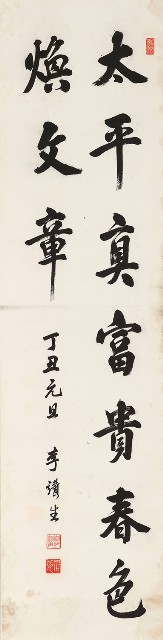 太平真富貴春色
煥文章
丁丑元旦 李